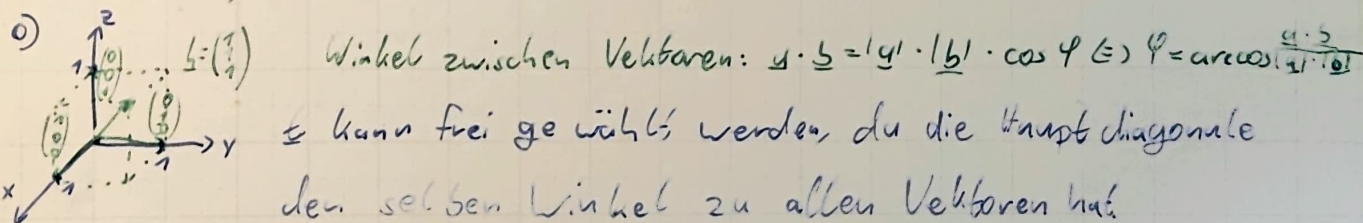 0)
z
1
b = (1 1 1)
Winkel zwischen Vektoren: a · b = |a| · |b| · cos φ ⇔ φ = arccos (a · b / |a| · |b|)
1
y
1
x
a kann frei gewählt werden, da die Hauptdiagonale
den selben Winkel zu allen Vektoren hat.